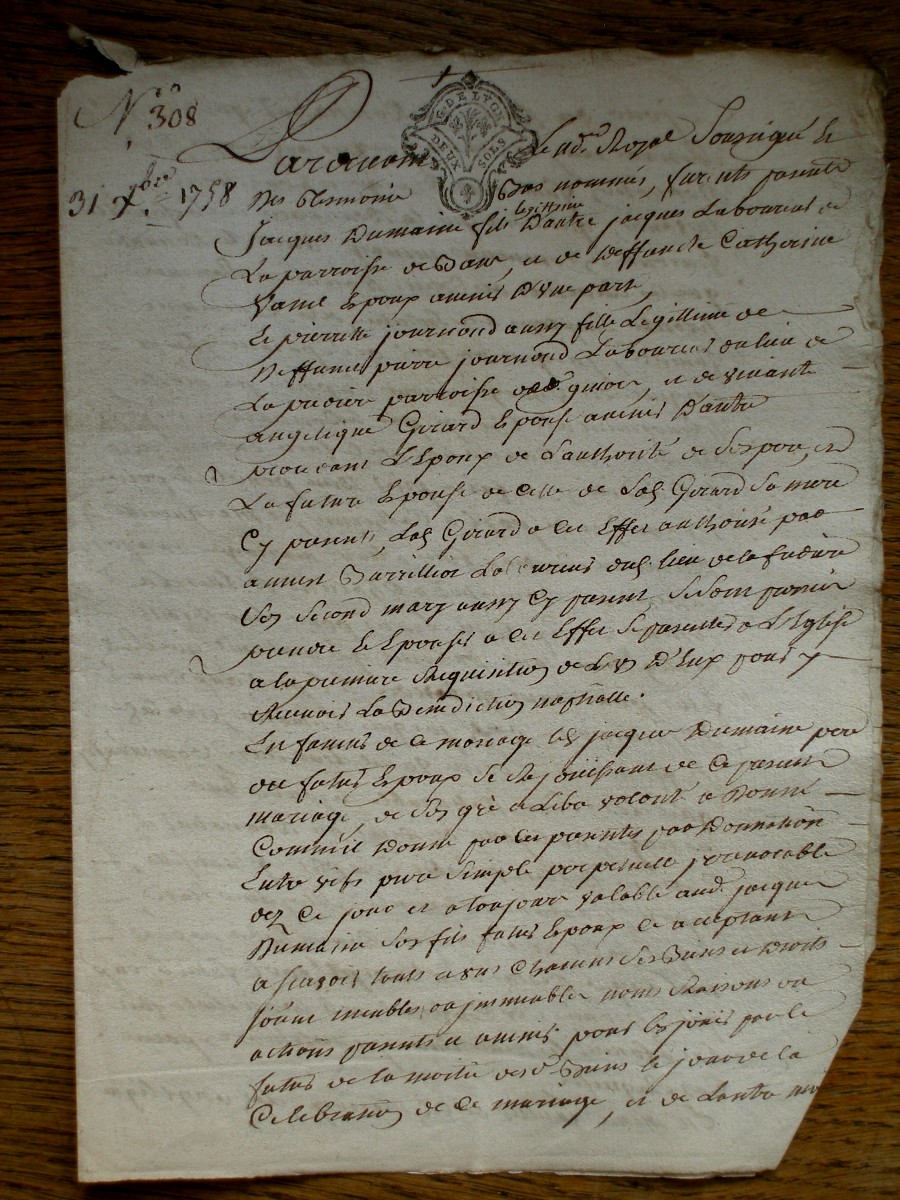 N.° 308
31 Xbre 1758
G. DE LYON
DEUX SOLS
Pardevant Le nore Royal Soussigné et
Des tesmoins Bas nommés, furents presents
Jacques Dumaine fils legittime D'autre jacques Laboureur de
La parroisse de , et de deffuncte Catherine
Epoux avenir D'une part,
Et pierrette journoud aussy fille Legittime de
Deffunct pierre journoud Laboureur du lieu de
La parroisse , et de vivante
angelique Girard Epouse avenir D'autre
procedant L'Epoux de L'authorité de son pere, et
La future Epouse de celle de Lad. Girard Sa mere
Cy presents, Lad. Girard a cet Effet authorisé par
Laboureur dud. lieu de la
Son second mary aussy Cy present, se sont promis
prendre et Epouser a cet Effet se presenter a L'Eglise
a la premiere Requisition de L'un D'Eux pour y
Recevoir La Benediction nuptialle.
En faveur de ce mariage led. jacques Dumaine pere
du futur Epoux se Rejouissant de ce present
mariage, de son gré et libre volonté a Donné
Comme il Donne par ces presentes par Donnation
Entre vifs pure simple perpetuelle jrrevocable
dez Ce jour et a toujour valable aud. jacques
Dumaine son fils futur Epoux Ce acceptant
a scavoir touts et uns Chacuns ses Biens et droits
meubles ou jmmeubles noms Raisons ou
actions presents et avenir pour En jouir par le
futur de la moitié desd. Biens le jour de la
Celebration de Ce mariage, et de L'autre